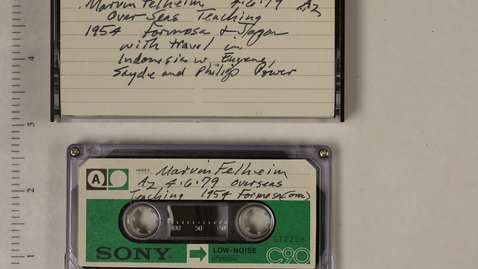 Marvin Felheim 4·6·79 A2
Overseas Teaching
1954 Formosa & Japan
with travel in
Indonesia w. Eugene,
Sayde and Philip Power
INDEX
Marvin Felheim
A A2 4·6·79 Overseas
Teaching 1954 Formosa (one)
100 50 0
SONY LOW-NOISE C90
4
3
2
1